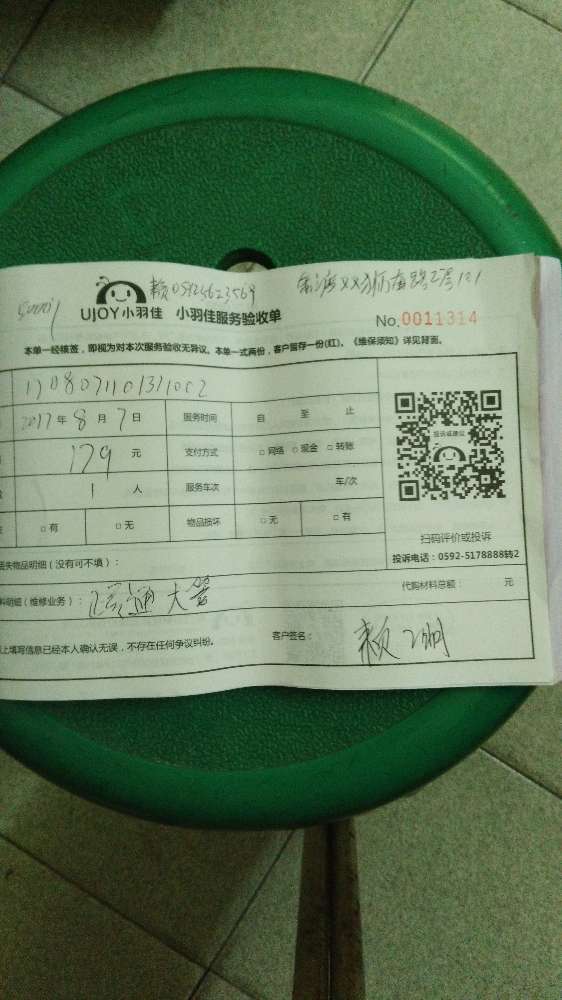 赖05925623569
UJOY小羽佳 小羽佳服务验收单
No.0011314
本单一经核签，即视为对本次服务验收无异议。本单一式两份，客户留存一份(红)。《维保须知》详见背面。
2017年8月7日 服务时间 自 至 止
179元 支付方式 □网络 □现金 □转账
投诉或建议
1人 服务车次 车/次
□有 □无 物品损坏 □无 □有
扫码评价或投诉
投诉电话：0592-5178888转2
丢失物品明细（没有可不填）：
料明细（维修业务）： 疏通大管 代购材料总额： 元
上填写信息已经本人确认无误，不存在任何争议纠纷。 客户签名：